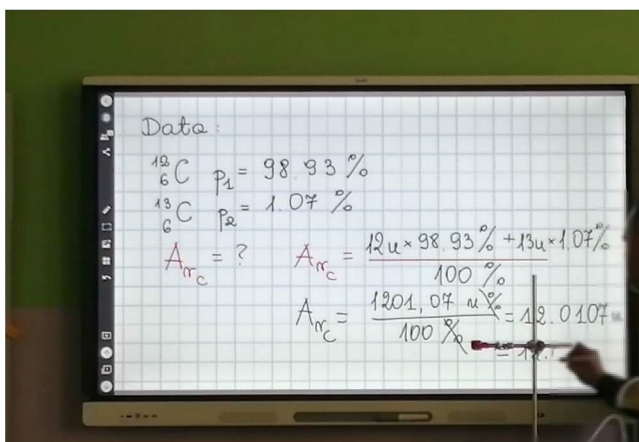 Data:
¹²₆C p₁ = 98.93 %
¹³₆C p₂ = 1.07 %
A_rC = ? A_rC = (12u × 98.93 % + 13u × 1.07 %) / 100 %
A_rC = 1201,07 u % / 100 % = 12.0107